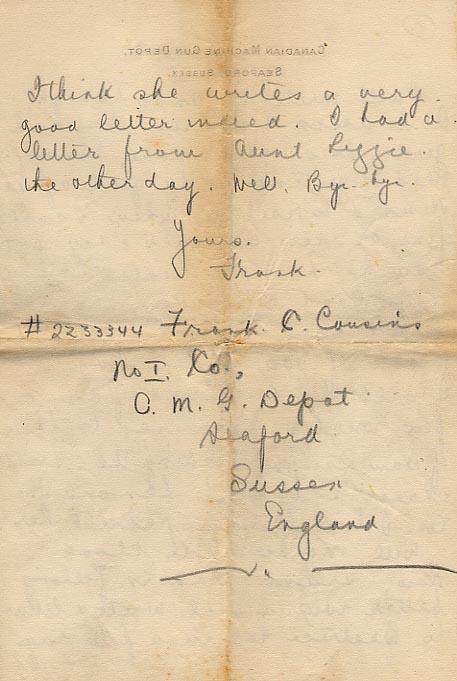 CANADIAN MACHINE GUN DEPOT,
SEAFORD, SUSSEX.
I think she writes a very
good letter indeed. I had a
letter from Aunt Lizzie.
the other day. Well. Bye. bye.
Yours.
Frank.
# 2233344 Frank. C. Cousins
No I. Co.,
C. M. G. Depot.
Seaford
Sussex
England